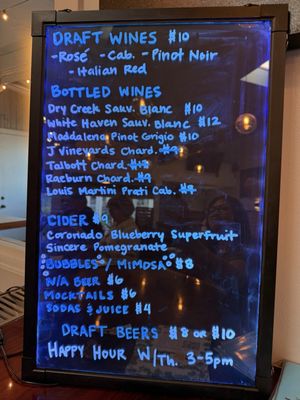 DRAFT WINES $10
-Rosé -Cab. -Pinot Noir
-Italian Red
BOTTLED WINES
Dry Creek Sauv. Blanc $10
White Haven Sauv. Blanc $12
Maddalena Pinot Grigio $10
J Vineyards Chard. $9
Talbott Chard.
Raeburn Chard. $9
Louis Martini Cab. $9
CIDER $9
Coronado Blueberry Superfruit
Sincere Pomegranate
BUBBLES / MIMOSA $8
N/A BEER $6
MOCKTAILS $6
SODAS & JUICE $4
DRAFT BEERS $8 OR $10
HAPPY HOUR W/Th. 3-5pm